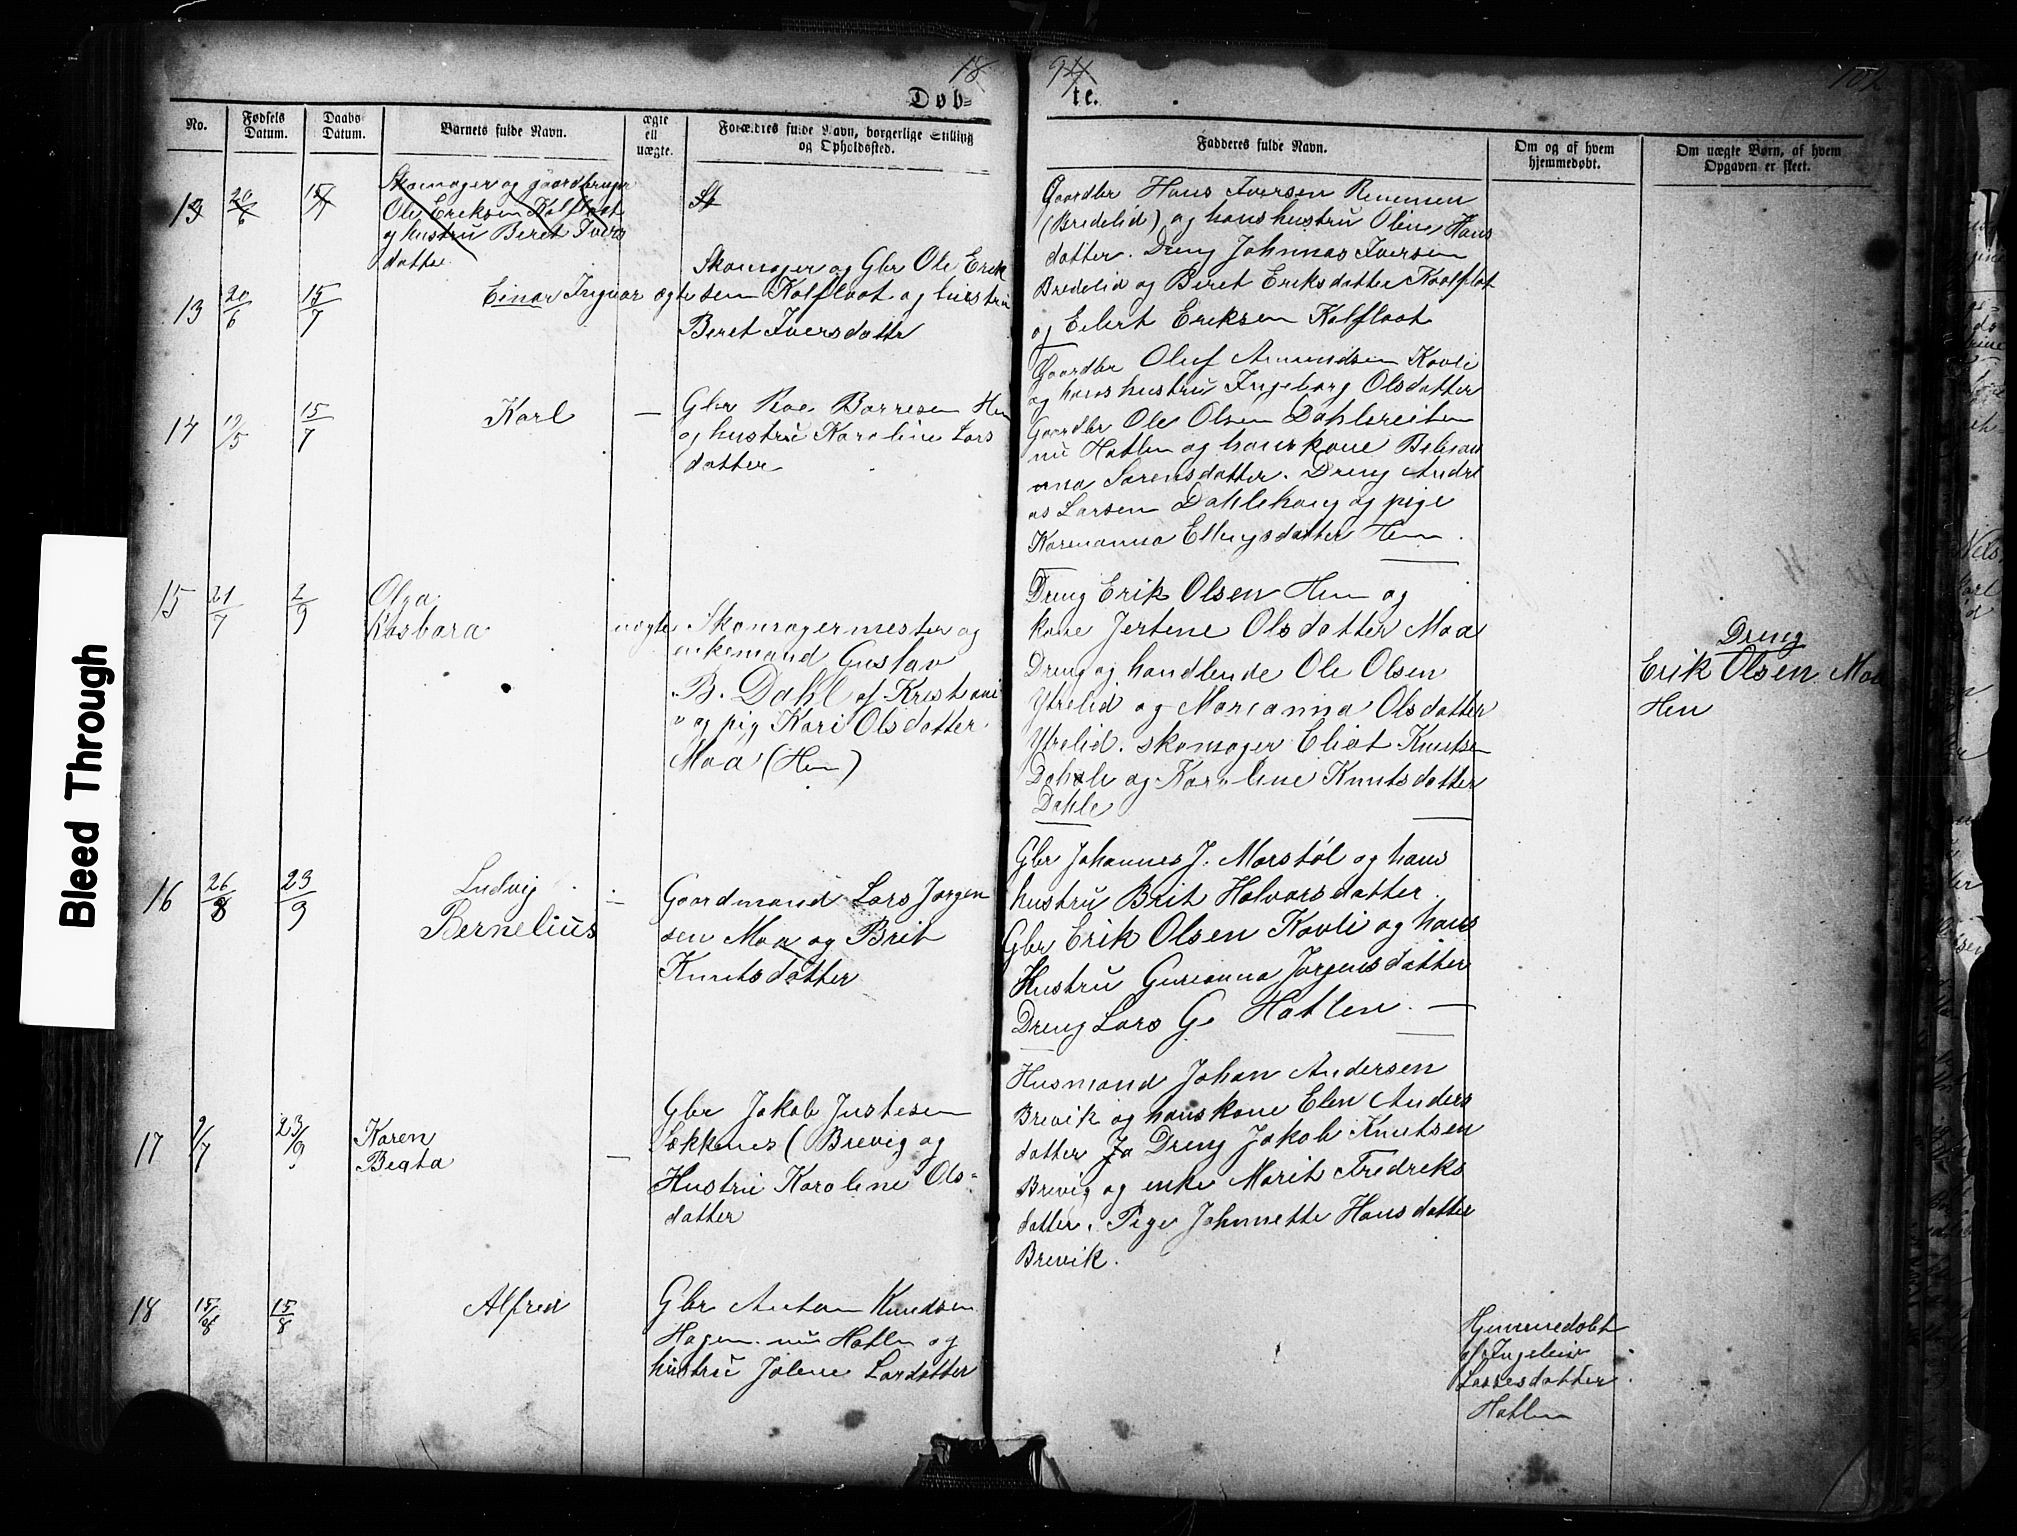 18 94 102
Døb- te.
No.
Fødsels Datum.
Daabs Datum.
Barnets fulde Navn.
ægte ell uægte.
Forældres fulde Navn, borgerlige Stilling og Opholdssted.
Fadderes fulde Navn.
Om og af hvem hjemmedøbt.
Om uægte Børn, af hvem Opgaven er skeet.
13 20/6 15/7
Skomager og gaardbruger
Ole Eriksen Kalfloat
og hustru Beret Ivers
datter
Gaardbr Hans Iversen Remmen
(Bredelid) og hans hustru Oline Hans
datter. Dreng Johannas Iversen
Bredelid og Beret Eriksdatter Koolflot
og Eilert Eriksen Kalfloat
13 20/6 15/7 Einar Ingvar ægte
Skomager og Gbr Ole Erik
sen Kalfloat og hustru
Beret Iversdatte
14 15/7 Karl —
Gbr Roe Barresen Hen
og hustru Karoline Lars
datter
Gaardbr Oluf Amundsen Kovli
og hans hustru Ingeborg Olsdatter
Gaardbr Ole Olsen Dahlsreiten
nu Hatlen og hans kone
Sørensdatter. Dreng Andre
as Larsen Dahlehaug og pige
Karenanna Ellingsdatter Hen.
15 21/7 2/9 Olga
Rasbara uægte
Skomagermester og
enkemand Gustav
B. Dahl af Kristiani
a og pig Kari Olsdatter
Maa (Hen)
Dreng Erik Olsen Hen og
kone Jertine Olsdatter Maa
Dreng og handlende Ole Olsen
Ytrelid og Marianna Olsdatter
Ytrelid. skomager Eliat Knutsen
Dahle og Karoline Knutsdatter
Dahle
Dreng
Erik Olsen Maa
Hen
16 26/8 23/9 Ludvig
Bernelius —
Gaardmand Lars Jørgen
sen Maa og Brit
Knutsdatter
Gbr Johannes J. Marstøl og hans
hustru Brit Halvorsdatter.
Gbr Erik Olsen Kovli og hans
Hustru Gurianna Jørgensdatter
Dreng Lars G. Hatlen. —
17 2/7 23/9 Karen
Beata —
Gbr Jakob Justesen
Løkkenes (Brevig og
Hustru Karoline Ols-
datter
Husmand Johan Andersen
Brevik og hans kone Elen Anders
datter Ja Dreng Jakob Knutsen
Brevig og enke Marit Fredriks
datter. Pige Johnnette Hansdatter
Brevik.
18 15/8 15/8 Alfred
Gbr Anton Knudsen
Hagen nu Hatlen og
hustru Jøline Larsdatter
Hjemmedøbt
af Ingeleiv
Lassesdatter.
Hatlen
Bleed Through